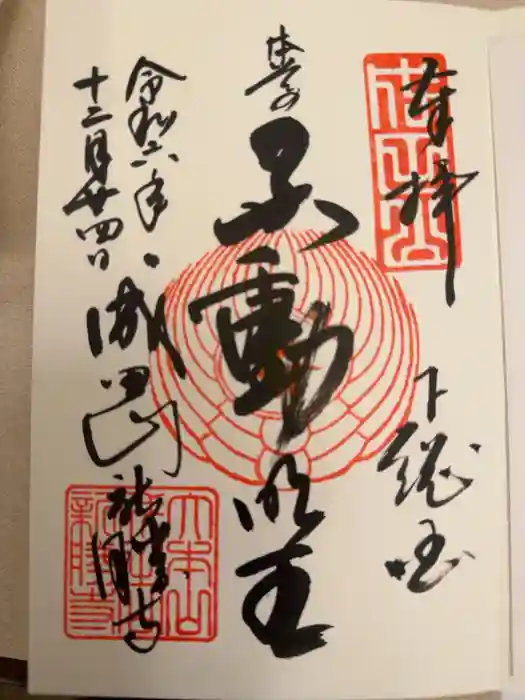 奉拝
下総国
本尊
不動明王
令和六年
十二月廿四日
成田山
新勝寺
成田山
大本山
新勝寺